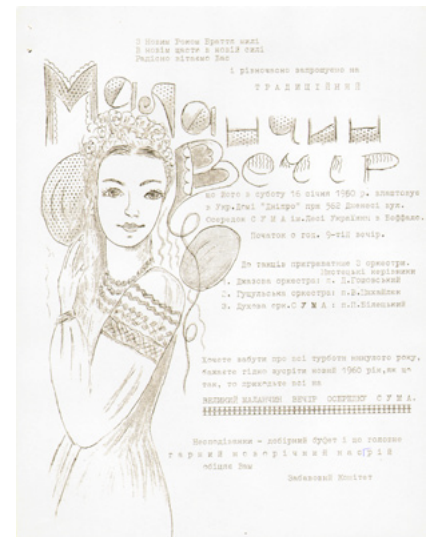 З Новим Роком Братом милі
В новім щасті в новій силі
Радісно вітаємо Вас
і рівночасно запрошуємо на
ТРАДИЦІЙНИЙ
Маланчин
Вечір
в суботу 16 січня 1960 р. влаштовує
в Укр. Домі "Дніпро" при 562 Дженезі вул.
Осередок С У М А ім. Лесі Українки в Боффало.
Початок о год. 9-тій вечір.
До танців пригравatime 3 оркестри.
Мистецькі керівники
1. Джазова оркестра: п.
2. Гуцульська оркестра: п.
3. Духова орк. С У М А : п.
Хочете забути про всі турботи минулого року,
бажаєте гідно зустріти новий 1960 рік,
то приходьте всі на
ВЕЛИКИЙ МАЛАНЧИН ВЕЧІР ОСЕРЕДКУ С У М А.
Несподіванки - добірний буфет і що головне
гарний новорічний настрій
обіцяє Вам
Забавовий Комітет